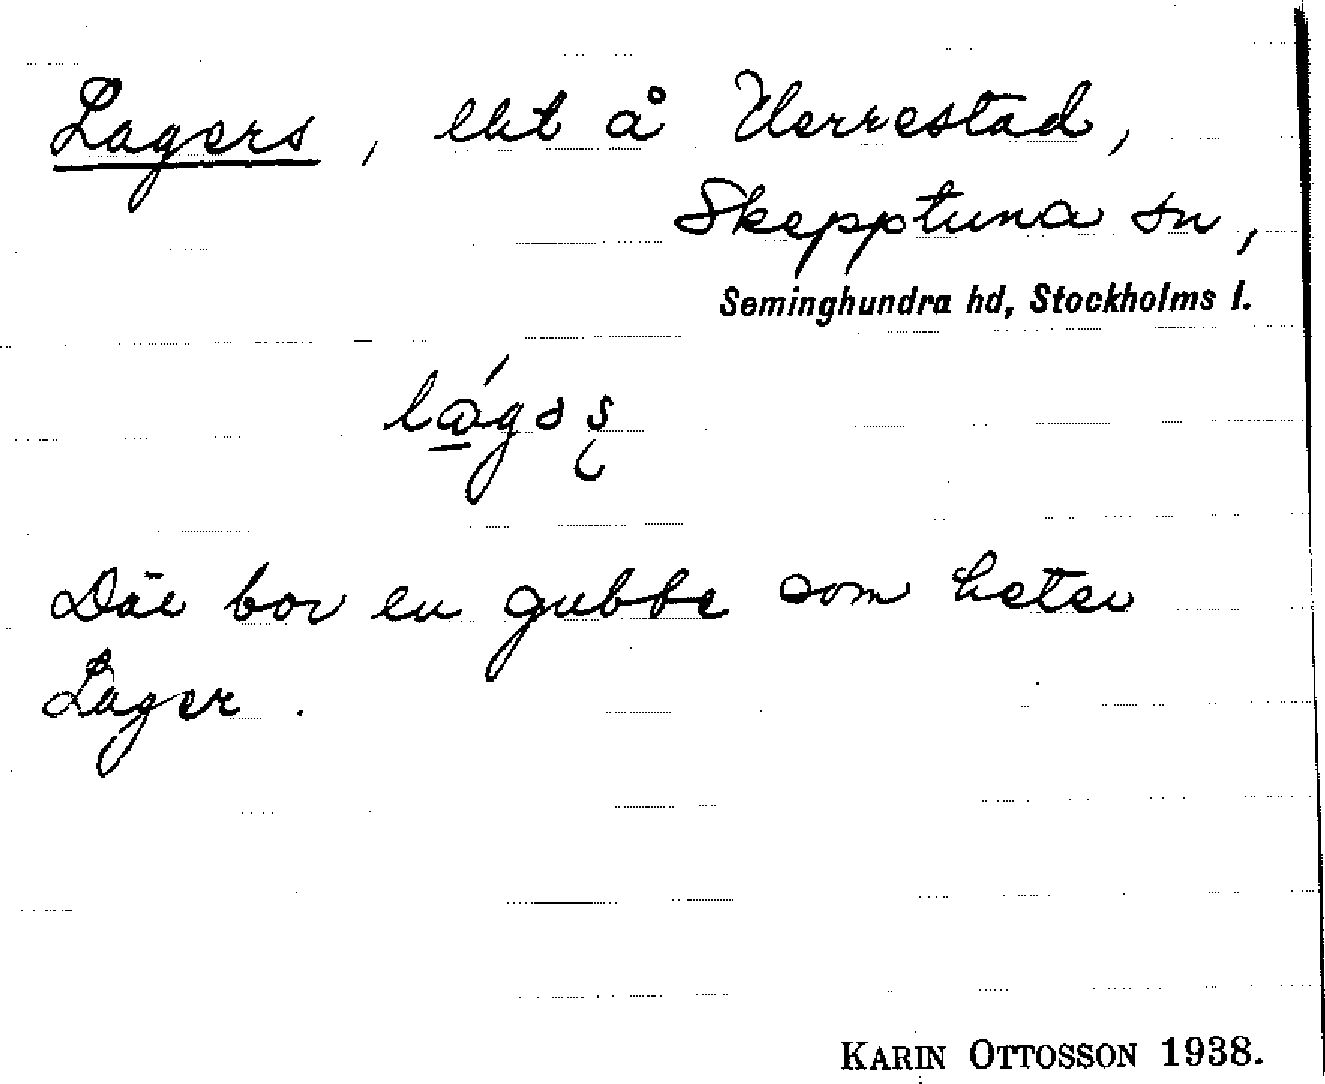 Lagers, lht å Herrestad,
Skepptuna sn,
Seminghundra hd, Stockholms l.
Där bor en gubbe som heter
Lager.
KARIN OTTOSSON 1938.